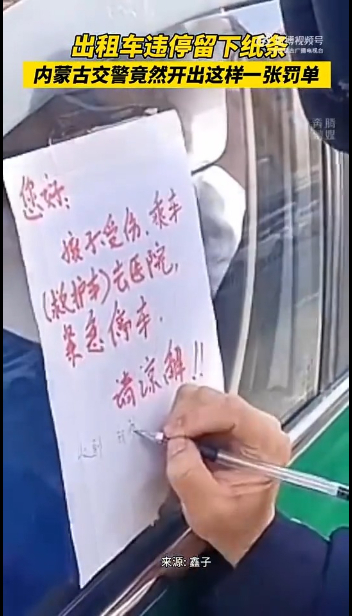 出租车违停留下纸条
内蒙古交警竟然开出这样一张罚单
奔腾
您好:
孩子受伤、乘车
(救护车)去医院,
紧急停车.
请谅解!!
来源:鑫子